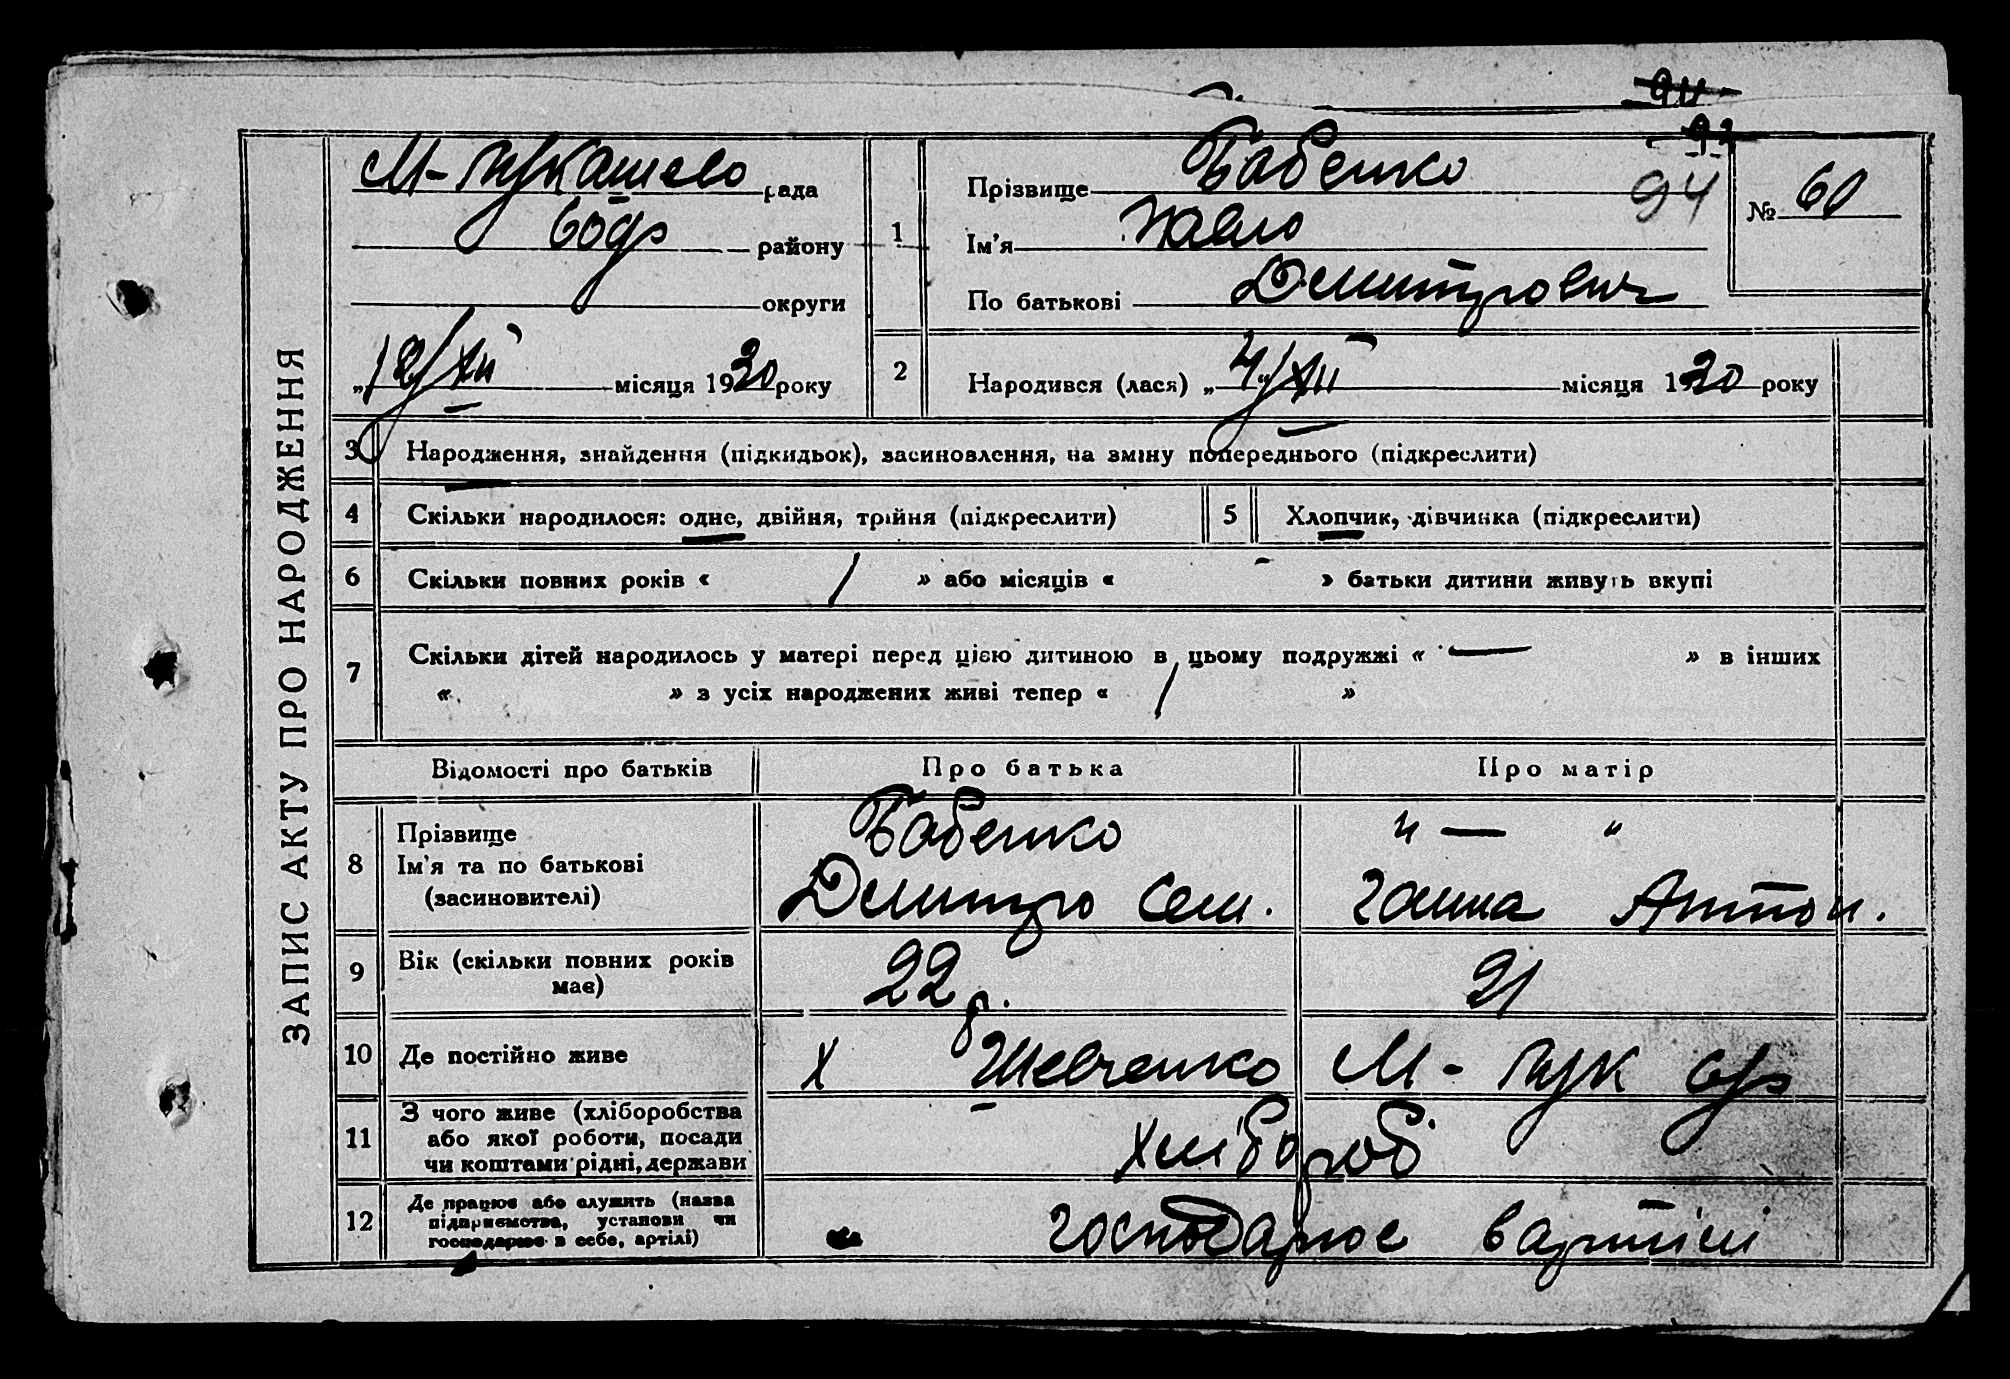 94
92
94
ЗАПИС АКТУ ПРО НАРОДЖЕННЯ
М-Лукашево рада
району
округи
„12/XII місяця 1930 року
1
Прізвище Бабенко
Ім'я Павло
По батькові Дмитрович
№ 60
2
Народився (лася) „4/XII місяця 1930 року
3 Народження, знайдення (підкидьок), засиновлення, на зміну попереднього (підкреслити)
4 Скільки народилося: одне, двійня, трійня (підкреслити)
5 Хлопчик, дівчинка (підкреслити)
6 Скільки повних років « 1 » або місяців « - » батьки дитини живуть вкупі
7 Скільки дітей народилось у матері перед цією дитиною в цьому подружжі « — » в інших
« » з усіх народжених живі тепер « 1 »
Відомості про батьків Про батька Про матір
8 Прізвище
Ім'я та по батькові
(засиновителі)
Бабенко
Дмитро Сем.
„ — “
Ганна Антон.
9 Вік (скільки повних років
має)
22 р.
21
10 Де постійно живе
х Шевченко М-Лук с/р
11 З чого живе (хліборобства
або якої роботи, посади
чи коштами рідні, держави
хлібороб
12 Де працює або служить (назва
підприємства, установи чи
господарює в себе, артілі)
господарює в артілі